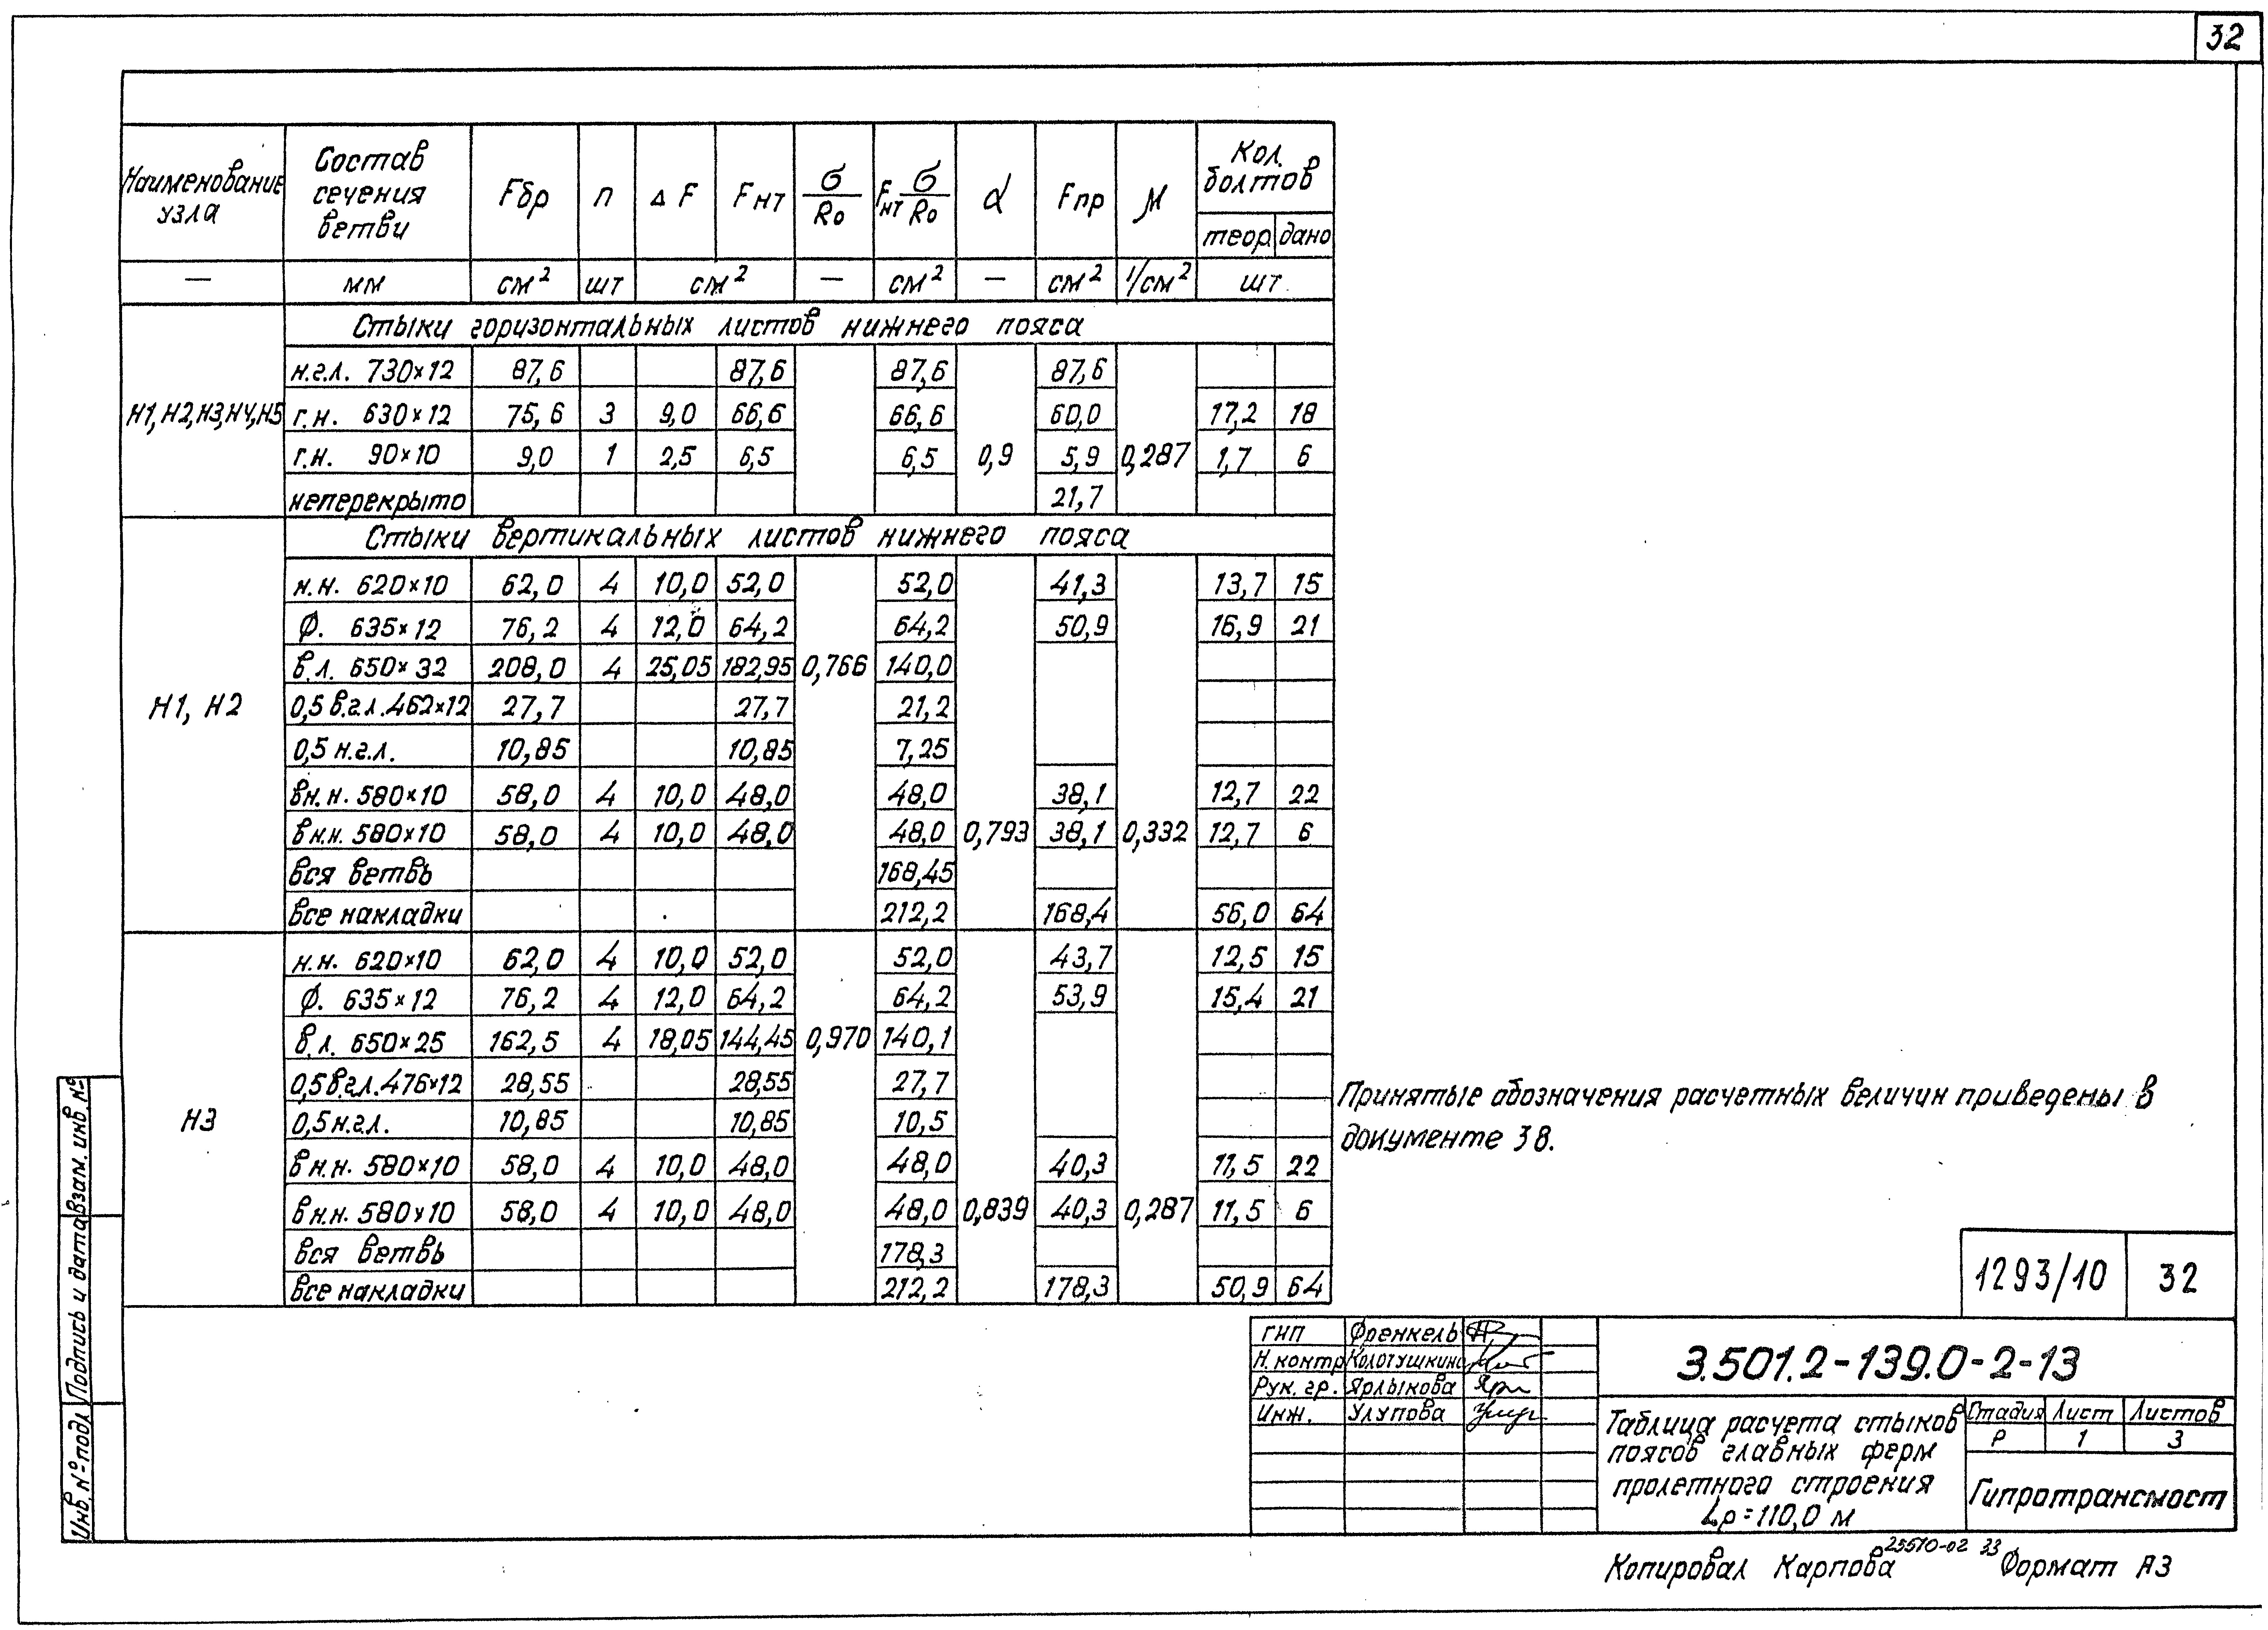 32
Наименование узла | Состав сечения ветви | Fбр | n | Δ F | Fнт | σ/Ro | Fнт σ/Ro | α | Fпр | μ | Кол. болтов
теор. | дано
— | мм | см² | шт | см² | — | см² | — | см² | 1/см² | шт.
Стыки горизонтальных листов нижнего пояса
н.г.л. 730×12 | 87,6 | 87,6 | 87,6 | 87,6
Н1, Н2, Н3, Н4, Н5 | г.н. 630×12 | 75,6 | 3 | 9,0 | 66,6 | 66,6 | 60,0 | 17,2 | 18
г.н. 90×10 | 9,0 | 1 | 2,5 | 6,5 | 6,5 | 0,9 | 5,9 | 0,287 | 1,7 | 6
неперекрыто | 21,7
Стыки вертикальных листов нижнего пояса
н.н. 620×10 | 62,0 | 4 | 10,0 | 52,0 | 52,0 | 41,3 | 13,7 | 15
Ф. 635×12 | 76,2 | 4 | 12,0 | 64,2 | 64,2 | 50,9 | 16,9 | 21
в.л. 650×32 | 208,0 | 4 | 25,05 | 182,95 | 0,766 | 140,0
Н1, Н2 | 0,5 в.г.л. 462×12 | 27,7 | 27,7 | 21,2
0,5 н.г.л. | 10,85 | 10,85 | 7,25
вн.н. 580×10 | 58,0 | 4 | 10,0 | 48,0 | 48,0 | 38,1 | 12,7 | 22
вн.н. 580×10 | 58,0 | 4 | 10,0 | 48,0 | 48,0 | 0,793 | 38,1 | 0,332 | 12,7 | 6
вся ветвь | 168,45
все накладки | 212,2 | 168,4 | 56,0 | 64
н.н. 620×10 | 62,0 | 4 | 10,0 | 52,0 | 52,0 | 43,7 | 12,5 | 15
Ф. 635×12 | 76,2 | 4 | 12,0 | 64,2 | 64,2 | 53,9 | 15,4 | 21
в.л. 650×25 | 162,5 | 4 | 18,05 | 144,45 | 0,970 | 140,1
0,5 в.г.л. 476×12 | 28,55 | 28,55 | 27,7
Н3 | 0,5 н.г.л. | 10,85 | 10,85 | 10,5
вн.н. 580×10 | 58,0 | 4 | 10,0 | 48,0 | 48,0 | 40,3 | 11,5 | 22
вн.н. 580×10 | 58,0 | 4 | 10,0 | 48,0 | 48,0 | 0,839 | 40,3 | 0,287 | 11,5 | 6
вся ветвь | 178,3
все накладки | 212,2 | 178,3 | 50,9 | 64
Принятые обозначения расчетных величин приведены в
документе 38.
Инв. № подл
Подпись и дата
Взам. инв. №
1293/10 | 32
ГИП | Френкель
Н. контр | Колотушкина
Рук. гр. | Ярлыкова
Инж. | Улупова
3.501.2-139.0-2-13
Таблица расчета стыков
поясов главных ферм
пролетного строения
Lр=110,0 м
Стадия | Лист | Листов
Р | 1 | 3
Гипротрансмост
Копировал Карпова 25570-02 33 Формат А3